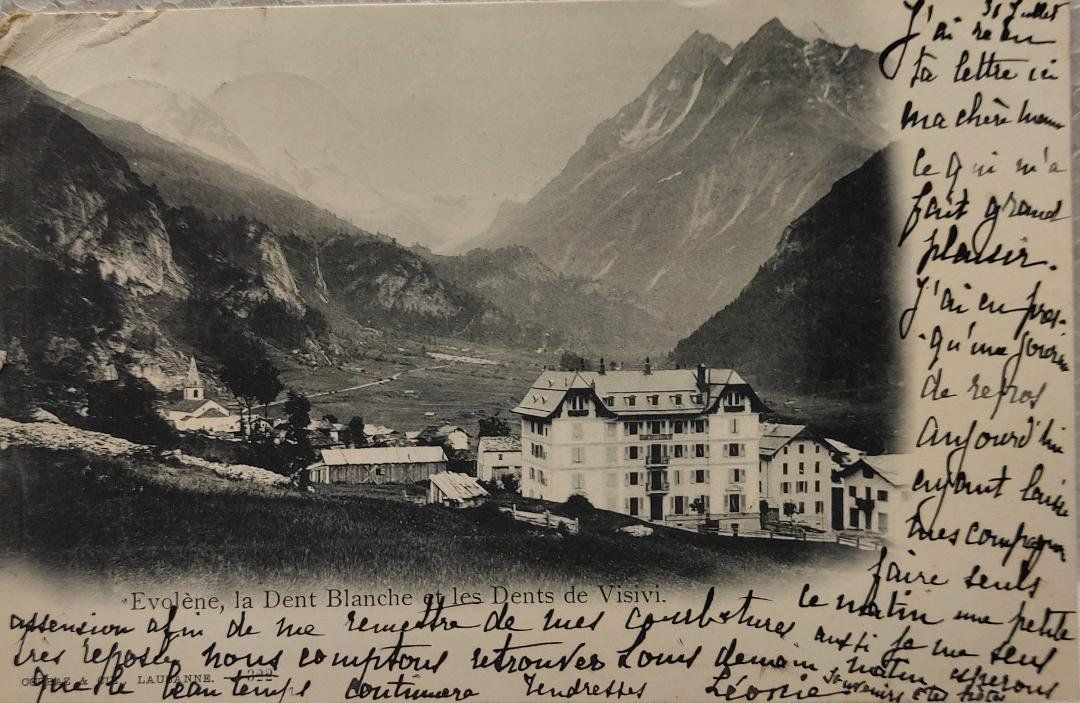 31 Juillet
J'ai reçu
ta lettre ici
ma chère
ce qui m'a
fait grand
plaisir.
J'ai eu pres-
qu'une
de repos
aujourd'hui
ayant laissé
mes
faire seuls
ce matin une petite
Evolène, la Dent Blanche et les Dents de Visivi.
assension afin de me remettre de mes courbatures aussi je me sens
très reposée nous comptons retrouver Louis demain matin espérons
que le beau temps continuera Tendresses Léonie
Souvenirs à tes frères
CORBAZ & CIE., LAUSANNE.